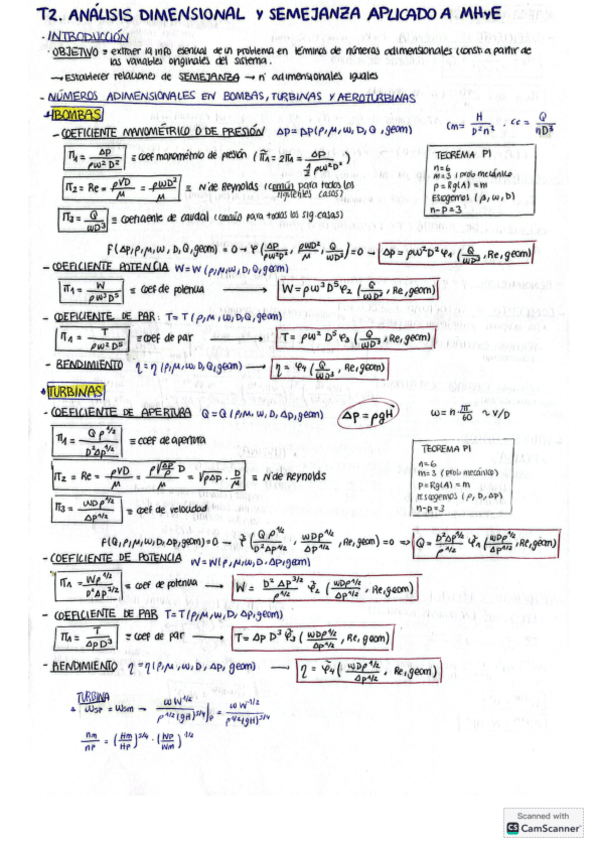 T2. ANÁLISIS DIMENSIONAL Y SEMEJANZA APLICADO A MHyE
· INTRODUCCIÓN
· OBJETIVO = extraer la info esencial de un problema en términa de números adimensionales const a partir de
las variables originales del sistema.
→ Establecer relaciones de SEMEJANZA → nº adimensionales iguales
- NÚMEROS ADIMENSIONALES EN BOMBAS, TURBINAS Y AEROTURBINAS
BOMBAS
- COEFICIENTE MANOMÉTRICO O DE PRESIÓN Δp = Δp(ρ, μ, ω, D, Q, geom)
Cm = H / D²n² , cc = Q / nD³
Π1 = Δp / ρω²D² ≡ coef manométrico de presión (Π̃1 = 2Π1 = Δp / ½ρω²D²)
TEOREMA PI
n=6
m=3 (prob mecánico)
p = Rg(A) = m
Escogemos (ρ, ω, D)
n-p = 3
Π2 = Re = ρVD / μ = ρωD² / μ ≡ Nº de Reynolds (común para todos los
siguientes casos)
Π3 = Q / ωD³ ≡ coeficiente de caudal (común para todos los sig. casos)
F(Δp, ρ, μ, ω, D, Q, geom) = 0 → φ(Δp / ρω²D², ρωD² / μ, Q / ωD³) = 0 → Δp = ρω²D²φ1(Q / ωD³, Re, geom)
- COEFICIENTE POTENCIA W = W(ρ, μ, ω, D, Q, geom)
Π1 = W / ρω³D⁵ ≡ coef de potencia → W = ρω³D⁵φ2(Q / ωD³, Re, geom)
- COEFICIENTE DE PAR: T = T(ρ, μ, ω, D, Q, geom)
Π1 = T / ρω²D⁵ ≡ coef de par → T = ρω²D⁵φ3(Q / ωD³, Re, geom)
- RENDIMIENTO η = η(ρ, μ, ω, D, Q, geom) → η = φ4(Q / ωD³, Re, geom)
TURBINAS
- COEFICIENTE DE APERTURA Q = Q(ρ, μ, ω, D, Δp, geom) Δp = ρgH ω = n·π/60 ~ V/D
Π1 = Qρ^1/2 / D²Δp^1/2 ≡ coef de apertura
TEOREMA PI
n=6
m=3 (prob mecánico)
p = Rg(A) = m
Escogemos (ρ, D, Δp)
n-p = 3
Π2 = Re = ρVD / μ = ρ√(Δp/ρ) D / μ = √ρΔp · D / μ ≡ Nº de Reynolds
Π3 = ωDρ^1/2 / Δp^1/2 ≡ coef de velocidad
F(Q, ρ, μ, ω, D, Δp, geom) = 0 → φ̃(Qρ^1/2 / D²Δp^1/2, ωDρ^1/2 / Δp^1/2, Re, geom) = 0 ⇒ Q = D²Δp^1/2 / ρ^1/2 φ̃1(ωDρ^1/2 / Δp^1/2, Re, geom)
- COEFICIENTE DE POTENCIA W = W(ρ, μ, ω, D, Δp, geom)
Π1 = Wρ^1/2 / D²Δp^3/2 ≡ coef de potencia → W = D²Δp^3/2 / ρ^1/2 φ̃2(ωDρ^1/2 / Δp^1/2, Re, geom)
- COEFICIENTE DE PAR T = T(ρ, μ, ω, D, Δp, geom)
Π1 = T / ΔpD³ ≡ coef de par → T = ΔpD³φ̃3(ωDρ^1/2 / Δp^1/2, Re, geom)
- RENDIMIENTO η = η(ρ, μ, ω, D, Δp, geom) → η = φ̃4(ωDρ^1/2 / Δp^1/2, Re, geom)
TURBINA
ωsp = ωsm → ωW^1/2 / ρ^1/2(gH)^5/4 |p = ωW^1/2 / ρ^1/2(gH)^5/4
nm / np = (Hm / Hp)^5/4 · (Wp / Wm)^1/2
Scanned with
CS CamScanner